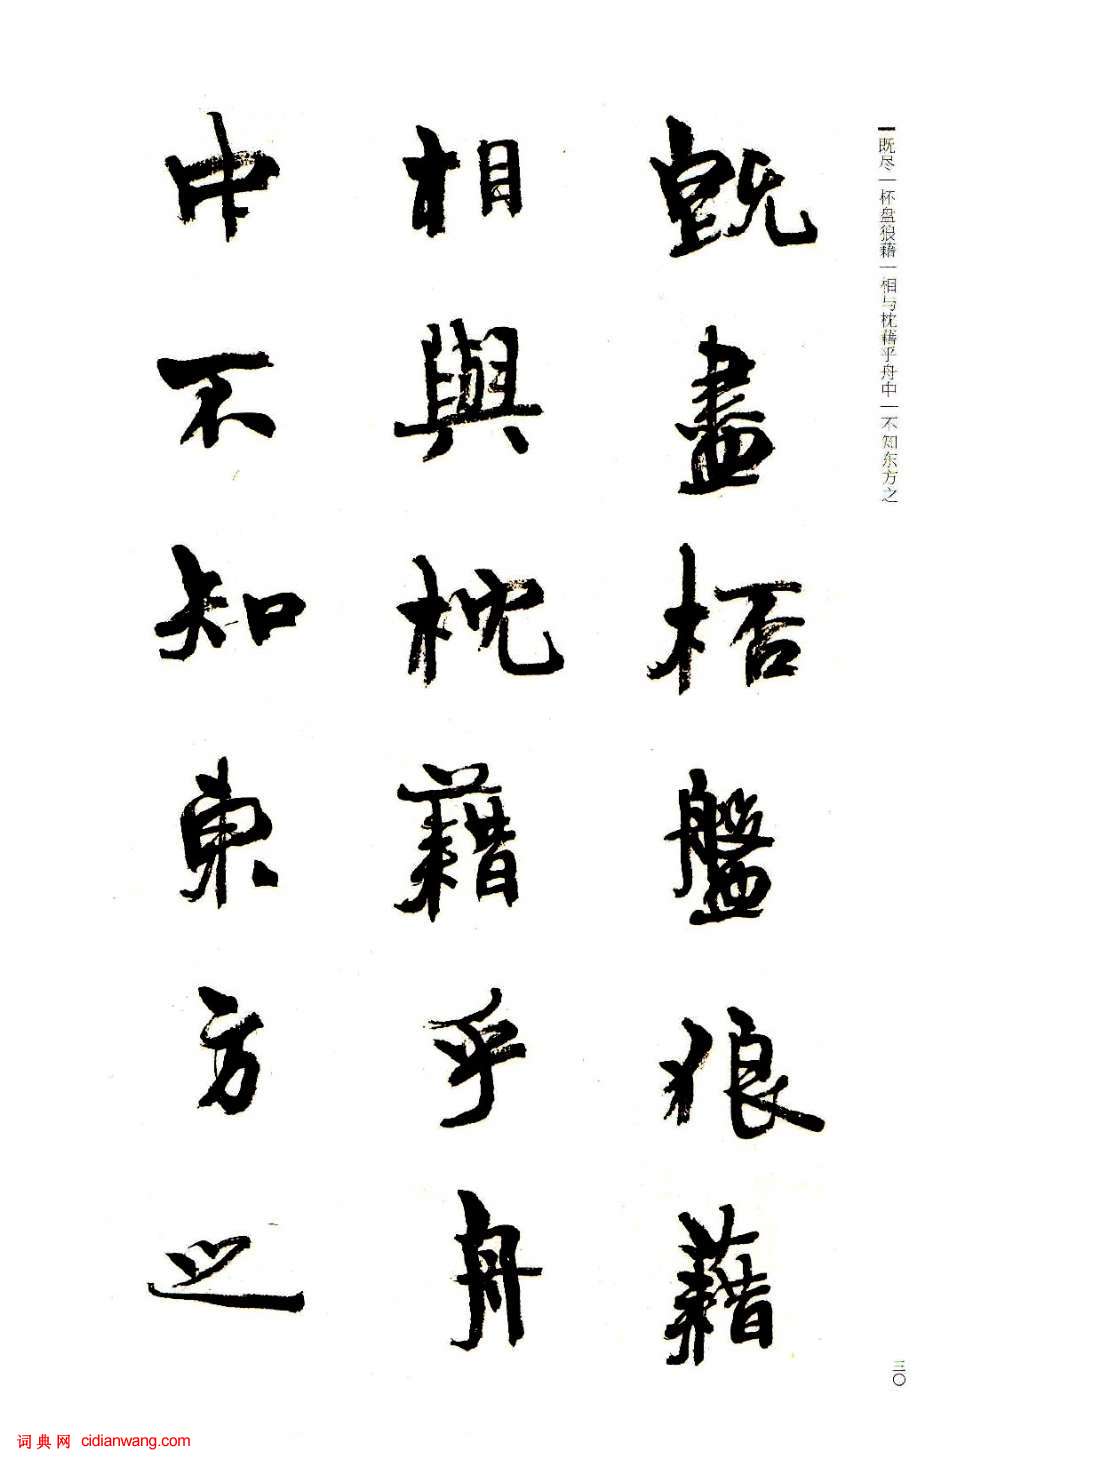 既尽︱杯盘狼藉︱相与枕藉乎舟中︱不知东方之
既盡桮盤狼藉
相與枕藉乎舟
中不知東方之
三〇
词典网 cidianwang.com